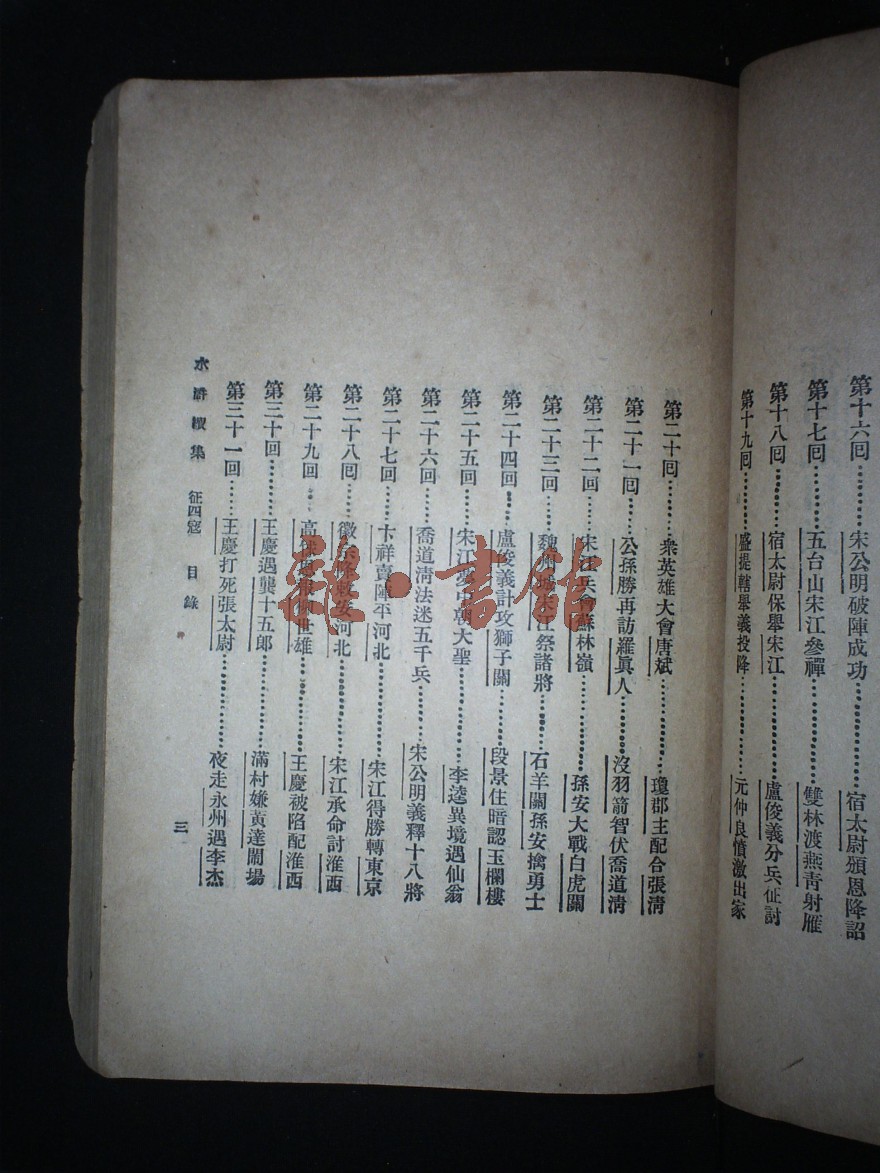 第十六囘 宋公明破陣成功 宿太尉頒恩降詔
第十七囘 五台山宋江參禪 雙林渡燕青射雁
第十八囘 宿太尉保舉宋江 盧俊義分兵征討
第十九囘 盛提轄舉義投降 元仲良憤激出家
第二十囘 衆英雄大會唐斌 瓊郡主配合張淸
第二十一囘 公孫勝再訪羅眞人 沒羽箭智伏喬道淸
第二十二囘 宋江兵 蘇林嶺 孫安大戰白虎關
第二十三囘 魏州城宋江祭諸將 石羊關孫安擒勇士
第二十四囘 盧俊義計攻獅子關 段景住暗認玉欄樓
第二十五囘 宋江夢中朝大聖 李逵異境遇仙翁
第二十六囘 喬道淸法迷五千兵 宋公明義釋十八將
第二十七囘 卞祥賣陣平河北 宋江得勝轉東京
第二十八囘 徽宗 安河北 宋江承命討淮西
第二十九囘 高俅 世雄 王慶被陷配淮西
第三十囘 王慶遇龔十五郎 滿村嫌黃達鬧場
第三十一囘 王慶打死張太尉 夜走永州遇李杰
水滸續集 征四寇 目錄 三
雜·書館